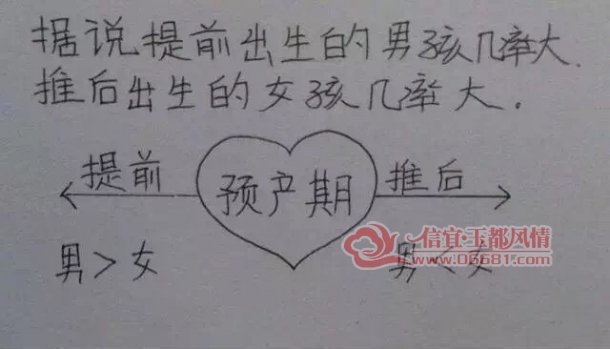 据说提前出生的男孩几率大.
推后出生的女孩几率大.
提前 预产期 推后
男>女 男<女
信宜·玉都风情
www.06681.com